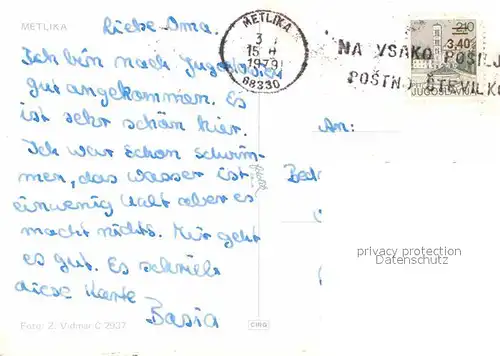 METLIKA
Liebe Oma.
Ich bin nach Jugoslavien
gut angekommen. Es
ist sehr schön hier.
Ich war schon schwim-
men, das wasser ist
einwenig kalt aber es
macht nichts. Mir geht
es gut. Es schrieb
diese Karte
Basia
Foto: Z. Vidmar C 2937
METLIKA
3
15 H
1979
68330
NA VSAKO POŠILJ
POŠTNO ŠTEVILKO
2,10
3,40
JUGOSLAVIJA
An:
privacy protection
Datenschutz